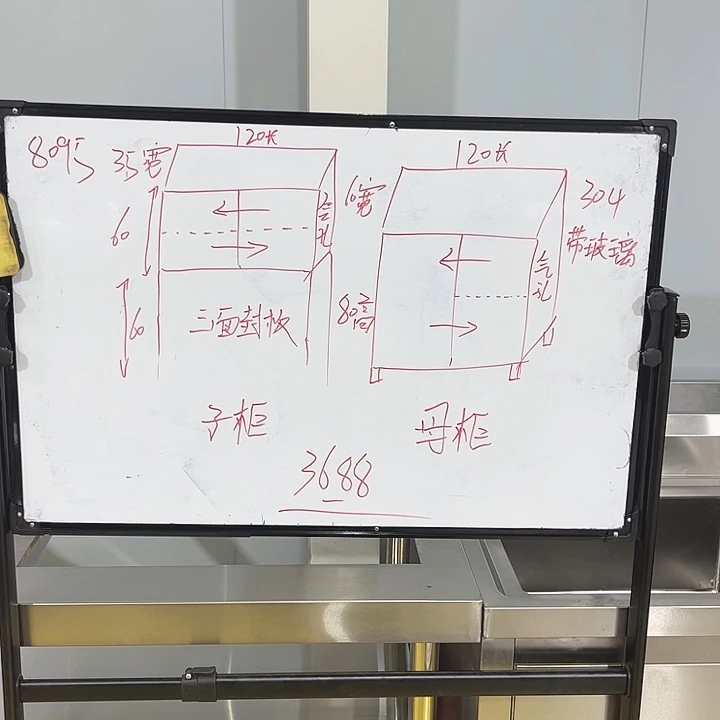 8095
120长
35宽
60
气孔
60
三面封板
子柜
120长
60宽
304
带玻璃
气孔
80高
母柜
3688